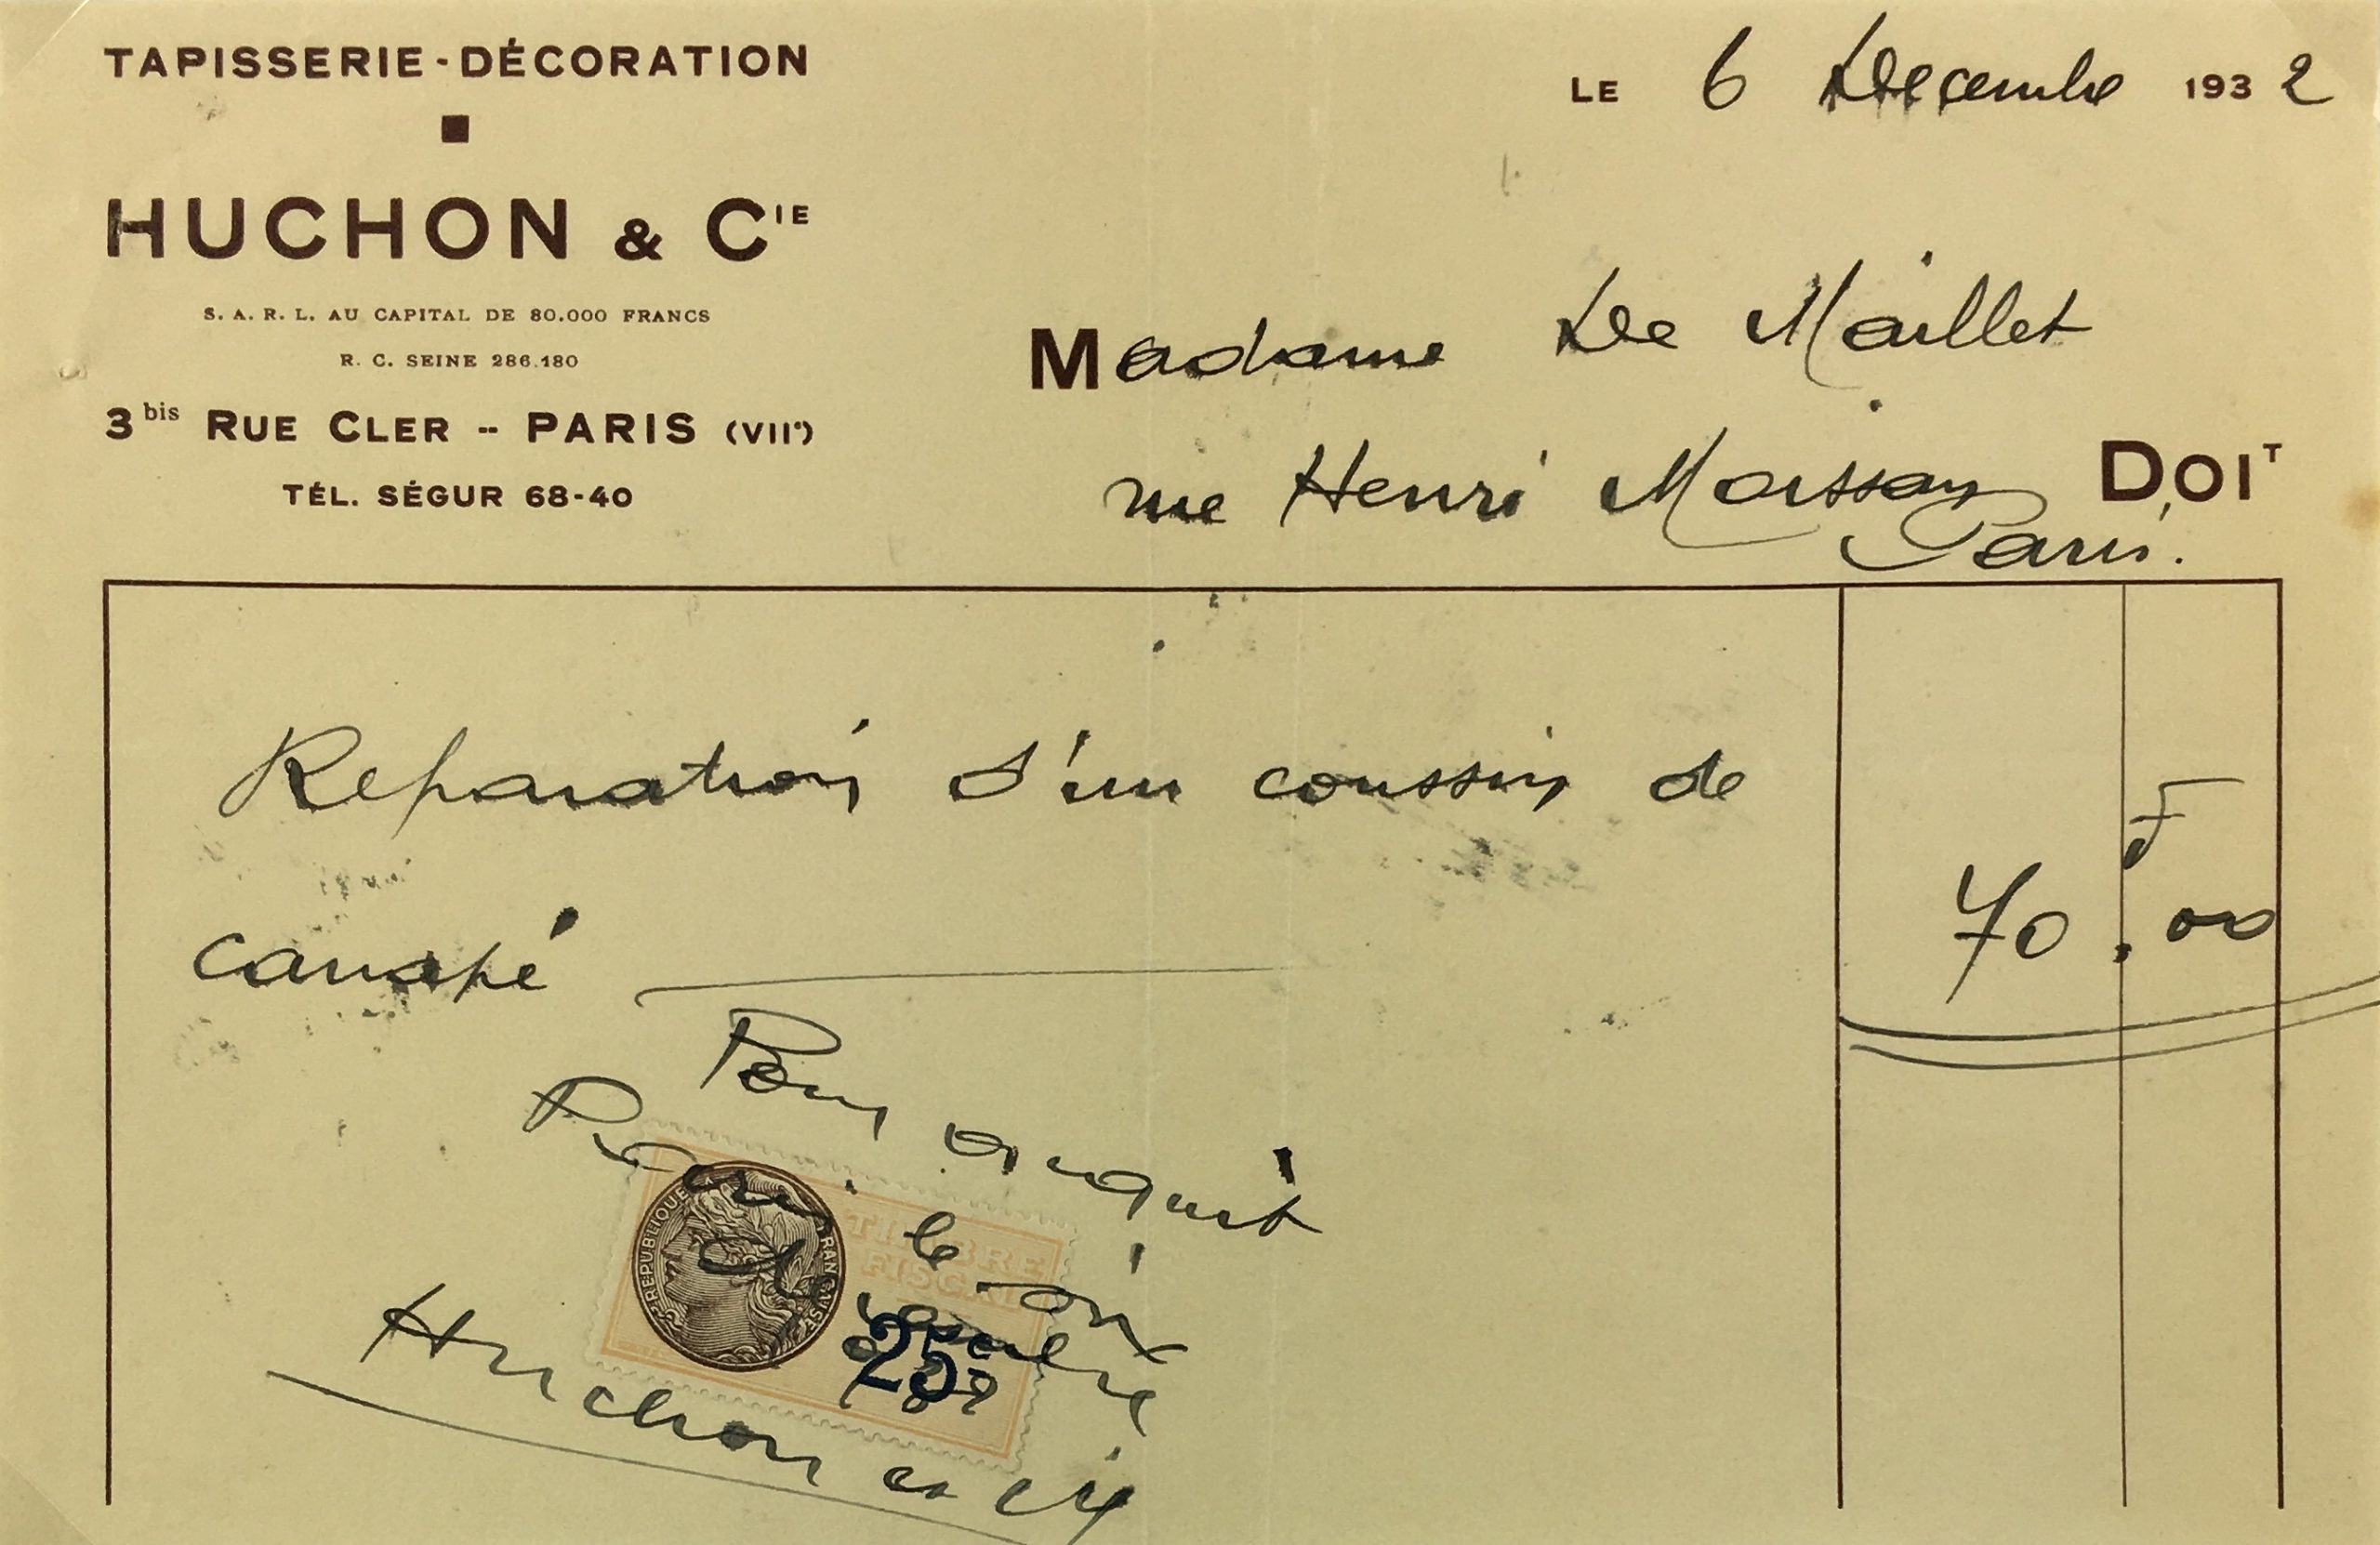 TAPISSERIE - DÉCORATION
HUCHON & CIE
S. A. R. L. AU CAPITAL DE 80.000 FRANCS
R. C. SEINE 286.180
3 bis RUE CLER -- PARIS (VIIe)
TÉL. SÉGUR 68-40
LE 6 Decembre 1932
Madame De Maillet
rue Henri Moissan DOIT
Paris.
Reparation d'un coussin de
canapé
F
70.00
Pour acquit
Paris le
RÉPUBLIQUE FRANÇAISE
TIMBRE
FISCAL
25
Huchon et Cie